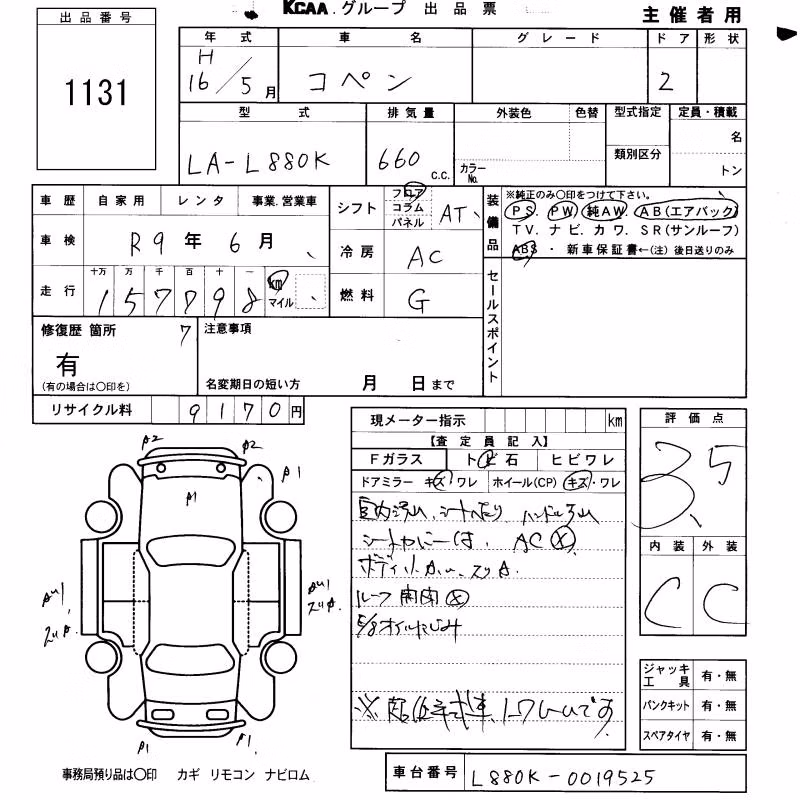 KCAA.グループ 出品票
主催者用
出品番号
1131
年式 車名 グレード ドア 形状
H16/5月 コペン 2
型式 排気量 外装色 色替 型式指定 定員・積載
LA-L880K 660 c.c. カラーNo. 類別区分 名
トン
車歴 自家用 レンタ 事業.営業車
車検 R9年6月
走行 十万 万 千 百 十 一
157798 km マイル
シフト フロア コラム パネル AT
冷房 AC
燃料 G
装備品
※純正のみ〇印をつけて下さい。
PS. PW. 純AW. AB(エアバック)
TV. ナビ. カワ. SR(サンルーフ)
ABS ・ 新車保証書←(注) 後日送りのみ
セールスポイント
修復歴 箇所 7
有
(有の場合は〇印を)
注意事項
名変期日の短い方 月 日まで
リサイクル料 9170円
現メーター指示 km
【査定員記入】
Fガラス トビ石 ヒビワレ
ドアミラー キズ・ワレ ホイール(CP) キズ・ワレ
室内汚れ、シートへたり、ハンドル
AC ⓧ
ボディ小
ルーフ 開閉 ⓧ
E/gオイルにじみ
※
評価点
3.5
内装 外装
C C
ジャッキ工具 有・無
パンクキット 有・無
スペアタイヤ 有・無
A2 A2
A1
A1
A1 A1
事務局預り品は〇印 カギ リモコン ナビロム
車台番号 L880K-0019525